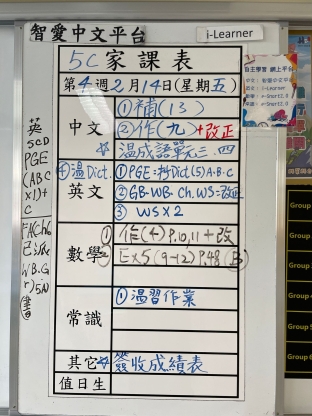 智愛中文平台
i-Learner
5C家課表
第4週2月14日(星期五)
中文
①補(13)
②作(九)+改正
☆温成語戰三、四
英文
④温Dict.
①PGE·抄Dict(5)A.B.C
②GB·WB·Ch.WS·改正
③ WS×2
數學
① 作(4)P.10,11+改
② Ex5(9-12)P.48
常識
①温習作業
其它
☆簽收成績表
值日生
英
5CD
PGE
(ABC
X1)+
C
Group
Group
Group
Group
Group
Group 6